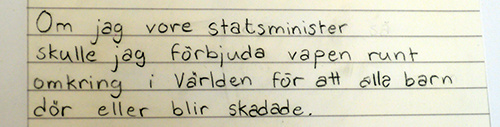 Om jag vore statsminister
skulle jag förbjuda vapen runt
omkring i Världen för att alla barn
dör eller blir skadade.